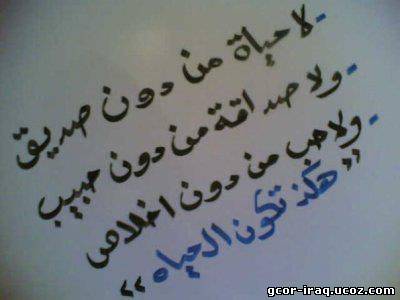 - لا حياة من دون صديق
- ولا صداقة من دون حبيب
- ولا حب من دون اخلاص
"هكذ تكون الحياه"
gcor-iraq.ucoz.com